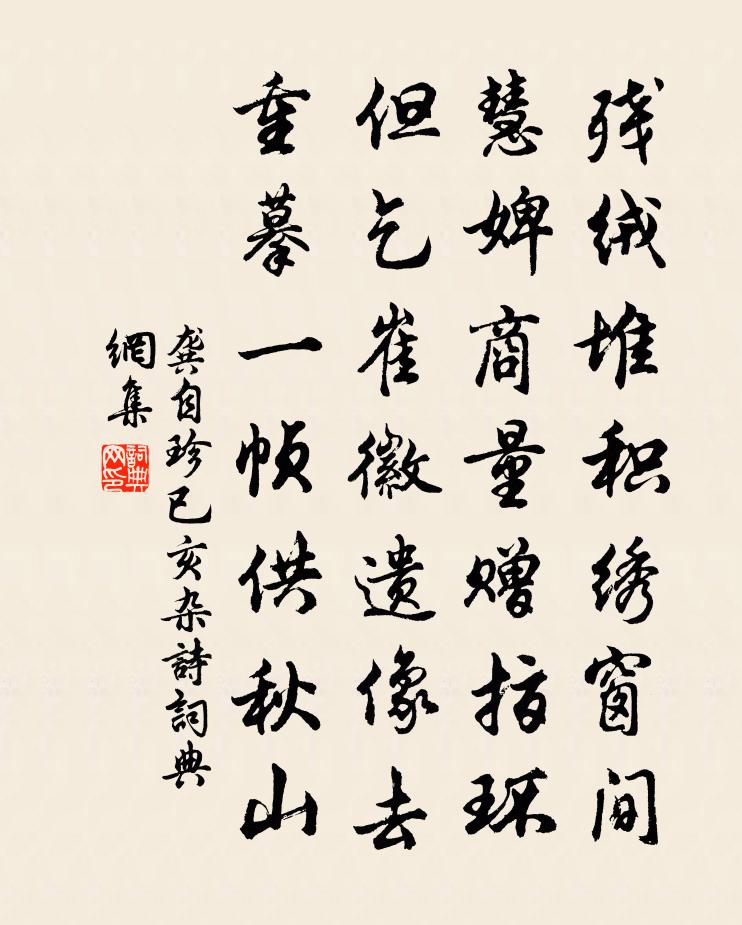 残绒堆积绣窗间
慧婢商量赠指环
但乞崔徽遗像去
重摹一帧供秋山
龚自珍已亥杂詩詞典
網集
詞典
网印